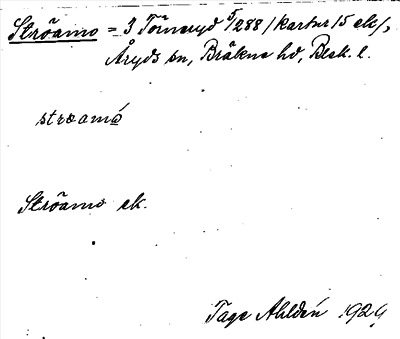 Ströamo = 3 Törneryd 5/288 /kartnr 15 ek/,
Åryds sn, Bräkne hd, Blek. l.
strɷamɷ
Ströamo ek.
Tage Ahldén 1929